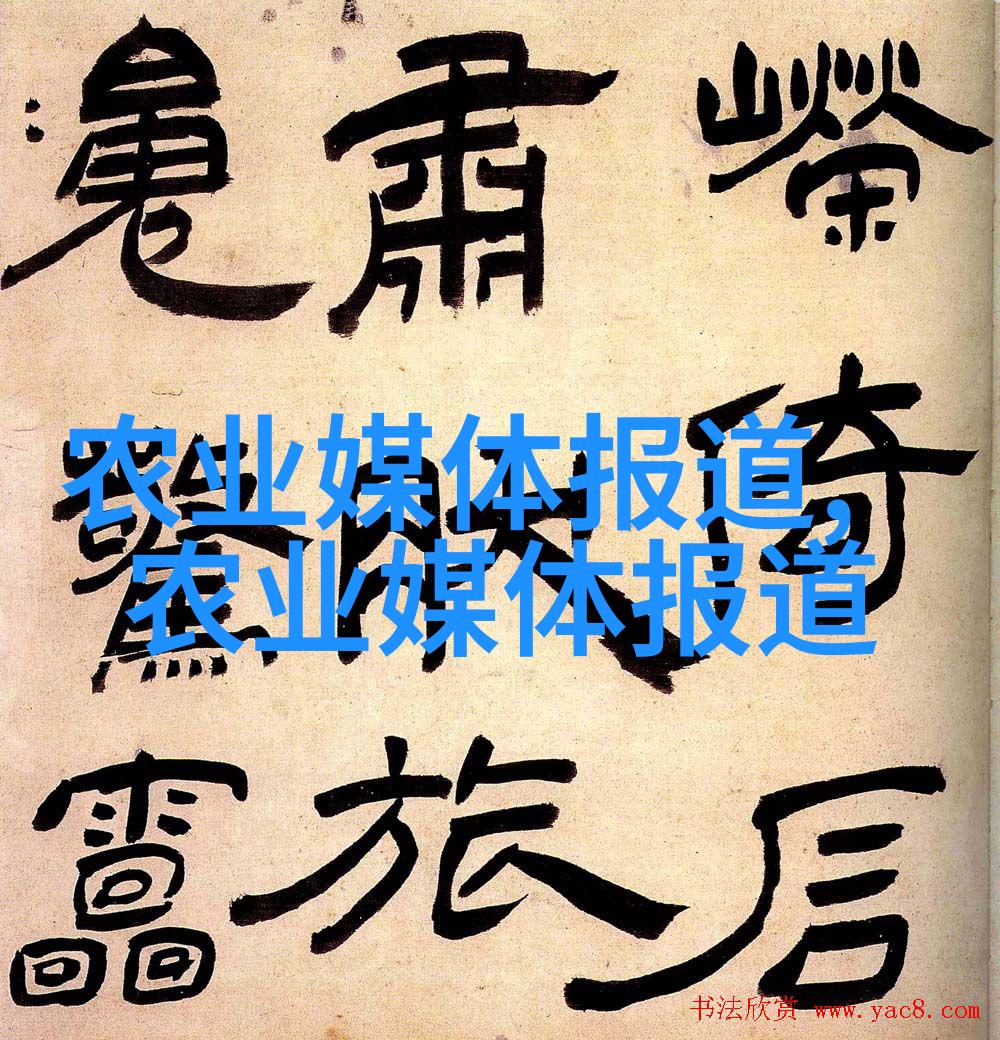 嶸倚
肅旅
靁
农业媒体报道,
农业媒体报道
书法欣赏 www.yac8.com